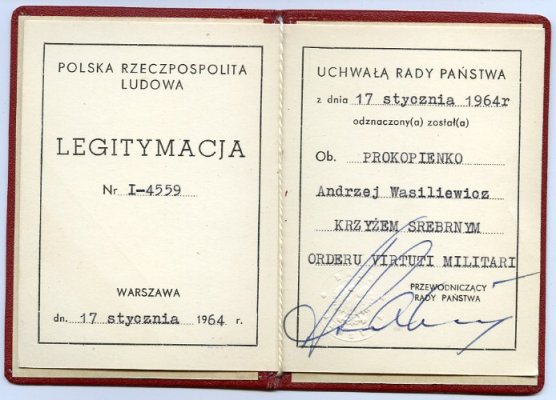 POLSKA RZECZPOSPOLITA
LUDOWA
LEGITYMACJA
Nr I-4559
WARSZAWA
dn. 17 stycznia 1964 r.
UCHWAŁĄ RADY PAŃSTWA
z dnia 17 stycznia 1964r
odznaczony(a) został(a)
Ob. PROKOPIENKO
Andrzej Wasiliewicz
KRZYŻEM SREBRNYM
ORDERU VIRTUTI MILITARI
PRZEWODNICZĄCY
RADY PAŃSTWA